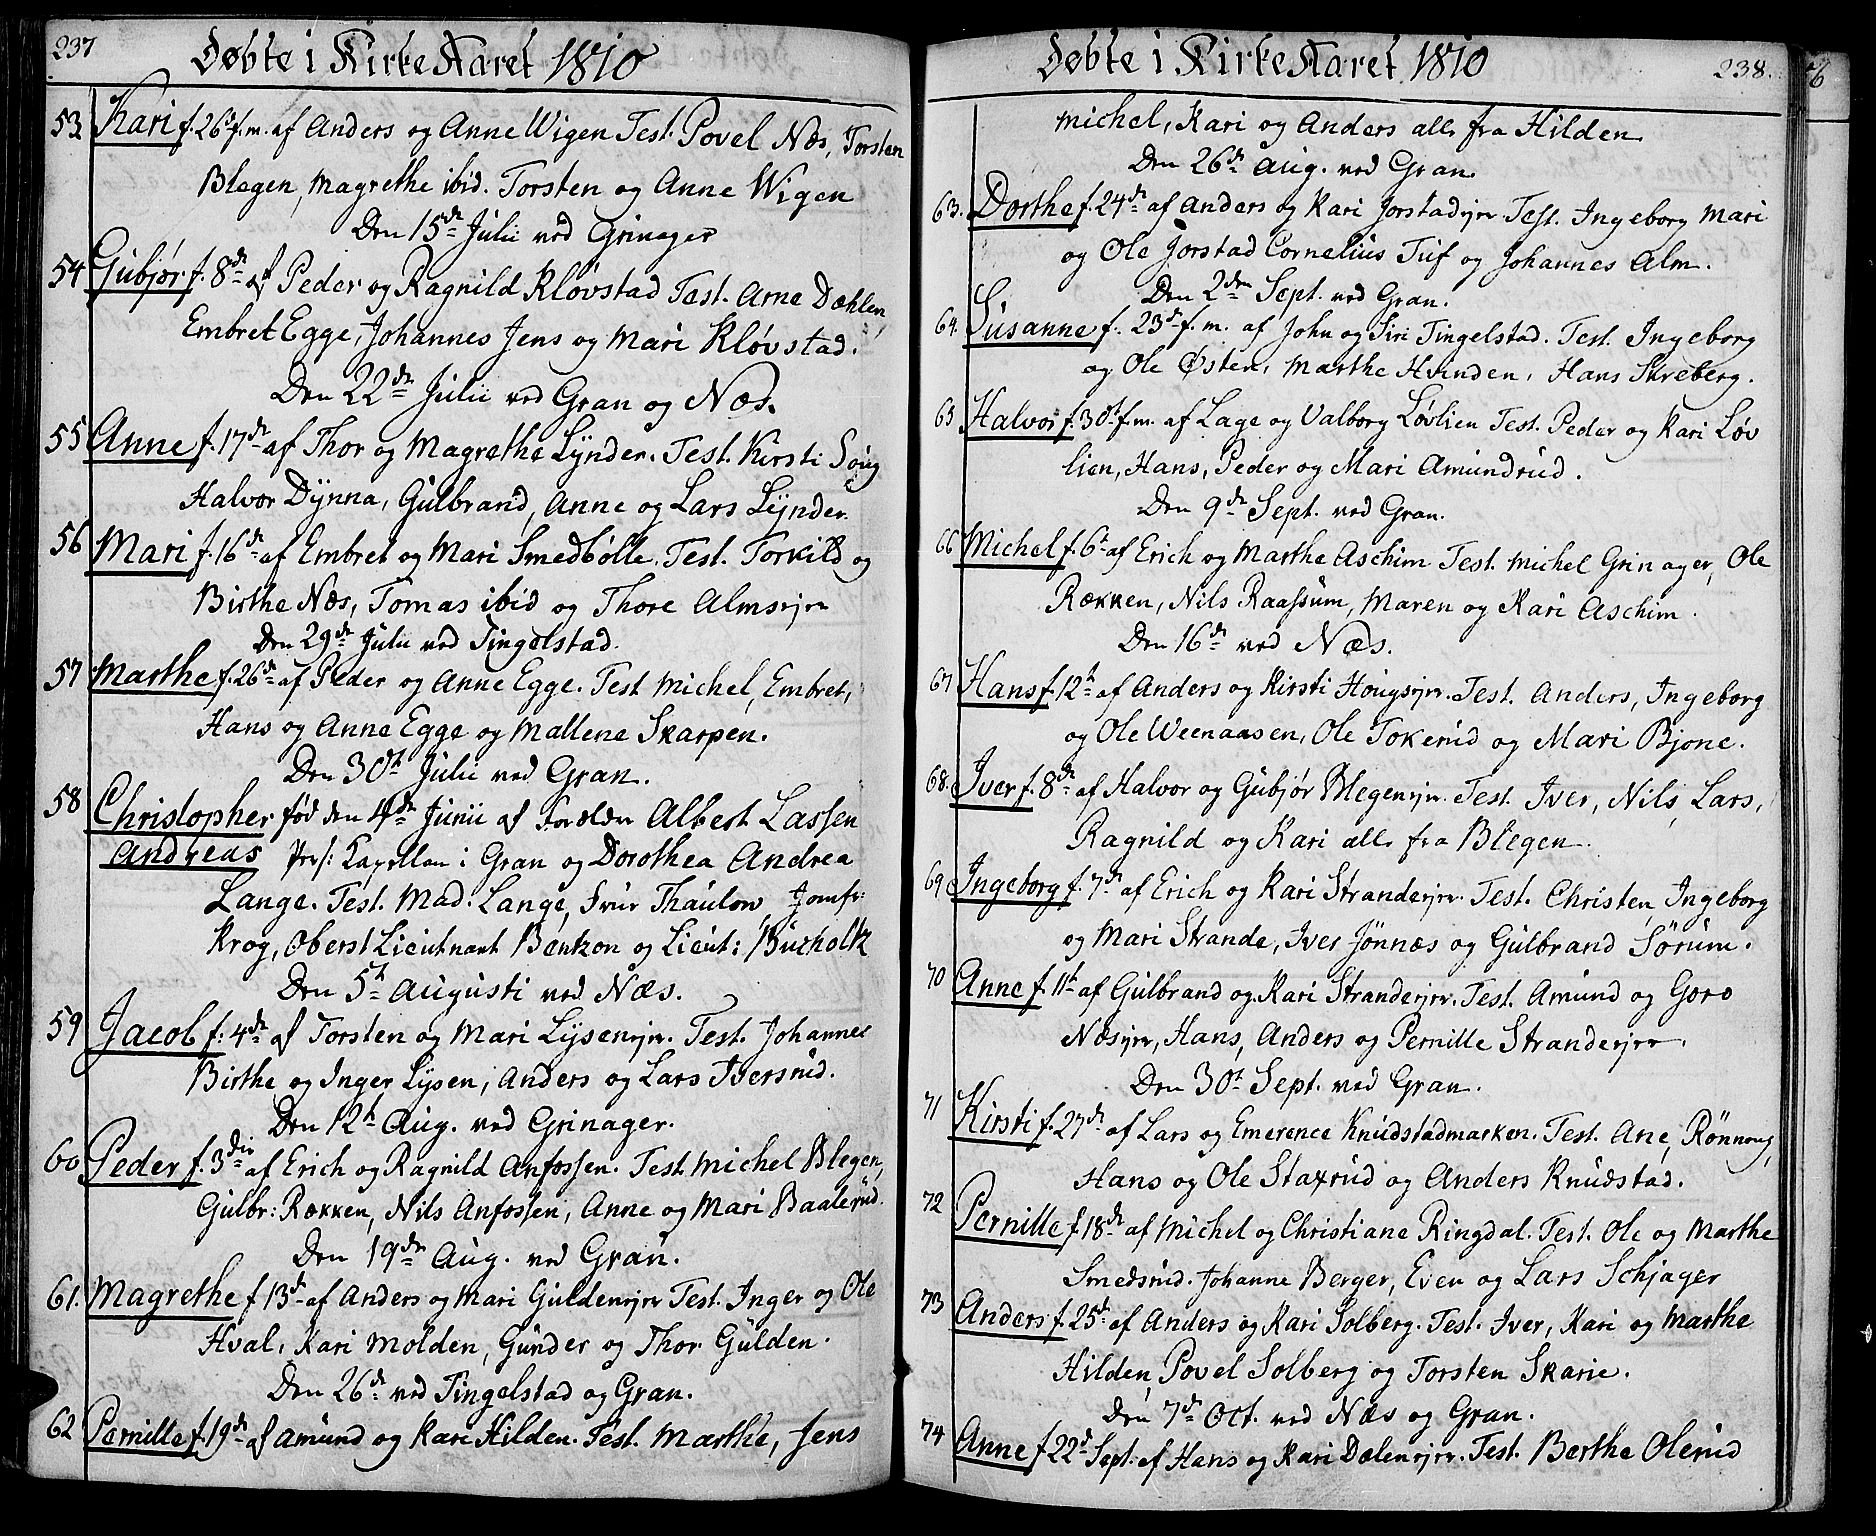 237
Døbte i Kirke Aaret 1810
53 Kari f. 26 f. m. af Anders og Anne Wigen Test. Povel Næs, Torsten
Blegen, Magrethe ibid. Torsten og Anne Wigen
Den 15de Julii ved Grinager
54 Gubjør f. 8de af Peder og Ragnild Kløvstad Test. Arne Dæhlen,
Embret Egge, Johannes Jens og Mari Kløvstad.
Den 22de Julii ved Gran og Næs.
55 Anne f. 17de af Thor og Magrethe Lynder. Test. Kirsti Soug
Halvor Dynna, Gulbrand, Anne og Lars Lynder
56 Mari f. 16de af Embret og Mari Smedbølle. Test. Torkild og
Birthe Næs, Tomas ibid og Thore Almsejer
Den 29de Julii ved Tingelstad.
57 Marthe f. 26de af Peder og Anne Egge. Test Michel, Embret,
Hans og Anne Egge og Mallene Skarpen.
Den 30t Julii ved Gran.
58 Christopher fød den 4de Junii af Forældre Albert Lassen
Andreas Pers: Kapellan i Gran og Dorothea Andrea
Lange. Test. Mad. Lange, Frue Thaulow, Jomfr:
Krog, Oberst Lieutnant Bentzon og Lieut: Buxholtz
Den 5t Augusti ved Næs.
59 Jacob f: 4de af Torsten og Mari Lysenejer. Test. Johannes
Birthe og Inger Lysen, Anders og Lars Iversrud.
Den 12t Aug. ved Grinager.
60 Peder f. 3die af Erich og Ragnild Anfossen. Test Michel Blegen,
Gulbr: Rækken, Nils Anfossen, Anne og Mari Baalerud.
Den 19de Aug. ved Gran.
61. Magrethe f 13de af Anders og Mari Guldenejer Test. Inger og Ole
Hval, Kari Molden, Gunder og Thor Gulden.
Den 26de ved Tingelstad og Gran.
62 Pernille f. 19de af Amund og Kari Hilden. Test. Marthe, Jens
Døbte i Kirke Aaret 1810
238.
Michel, Kari og Anders alle fra Hilden
Den 26de Aug. ved Gran.
63. Dorthe f. 24de af Anders og Kari Jorstadejer Test. Ingeborg Mari
og Ole Jorstad Cornelius Tuf og Johannes Alm.
Den 2den Sept. ved Gran.
64. Susanne f. 23de f. m. af John og Siri Tingelstad. Test. Ingeborg
og Ole Østen, Marthe Hvinden, Hans Skreberg.
65 Halvor f. 30t f. m. af Lage og Valborg Løvlien Test. Peder og Kari Løv
lien, Hans, Peder og Mari Amundrud.
Den 9de Sept. ved Gran.
66 Michel f. 6t af Erich og Marthe Aschim Test. Michel Grinager, Ole
Rækken, Nils Raassum, Maren og Kari Aschim.
Den 16de ved Næs.
67 Hans f. 12t af Anders og Kirsti Hougsejer. Test. Anders, Ingeborg
og Ole Weenaasen, Ole Tokerud og Mari Bjone.
68. Iver f. 8de af Halvor og Gubjør Blegenejer. Test. Iver, Nils, Lars,
Ragnild og Kari alle fra Blegen.
69 Ingeborg f. 7de af Erich og Kari Strandeejer. Test. Christen, Ingeborg
og Mari Strande, Iver Jønnæs og Gulbrand Sørum.
70 Anne f. 11t af Gulbrand og Kari Strandeejer. Test. Amund og Goro
Næsejer, Hans, Anders og Pernille Strandeejer.
Den 30t Sept. ved Gran.
71 Kirsti f. 27de af Lars og Emerence Knudstadmarken. Test. Ane, Rønnoug,
Hans og Ole Staxrud og Anders Knudstad.
72 Pernille f. 18de af Michel og Christiane Ringdal. Test. Ole og Marthe
Smedsrud. Johanne Berger, Even og Lars Schjager
73 Anders f. 25de af Anders og Kari Solberg. Test. Iver, Kari og Marthe
Hilden, Povel Solberg og Torsten Skarie.
Den 7de Oct. ved Næs og Gran.
74 Anne f 22de Sept. af Hans og Kari Dælenejer. Test. Berthe Olerud